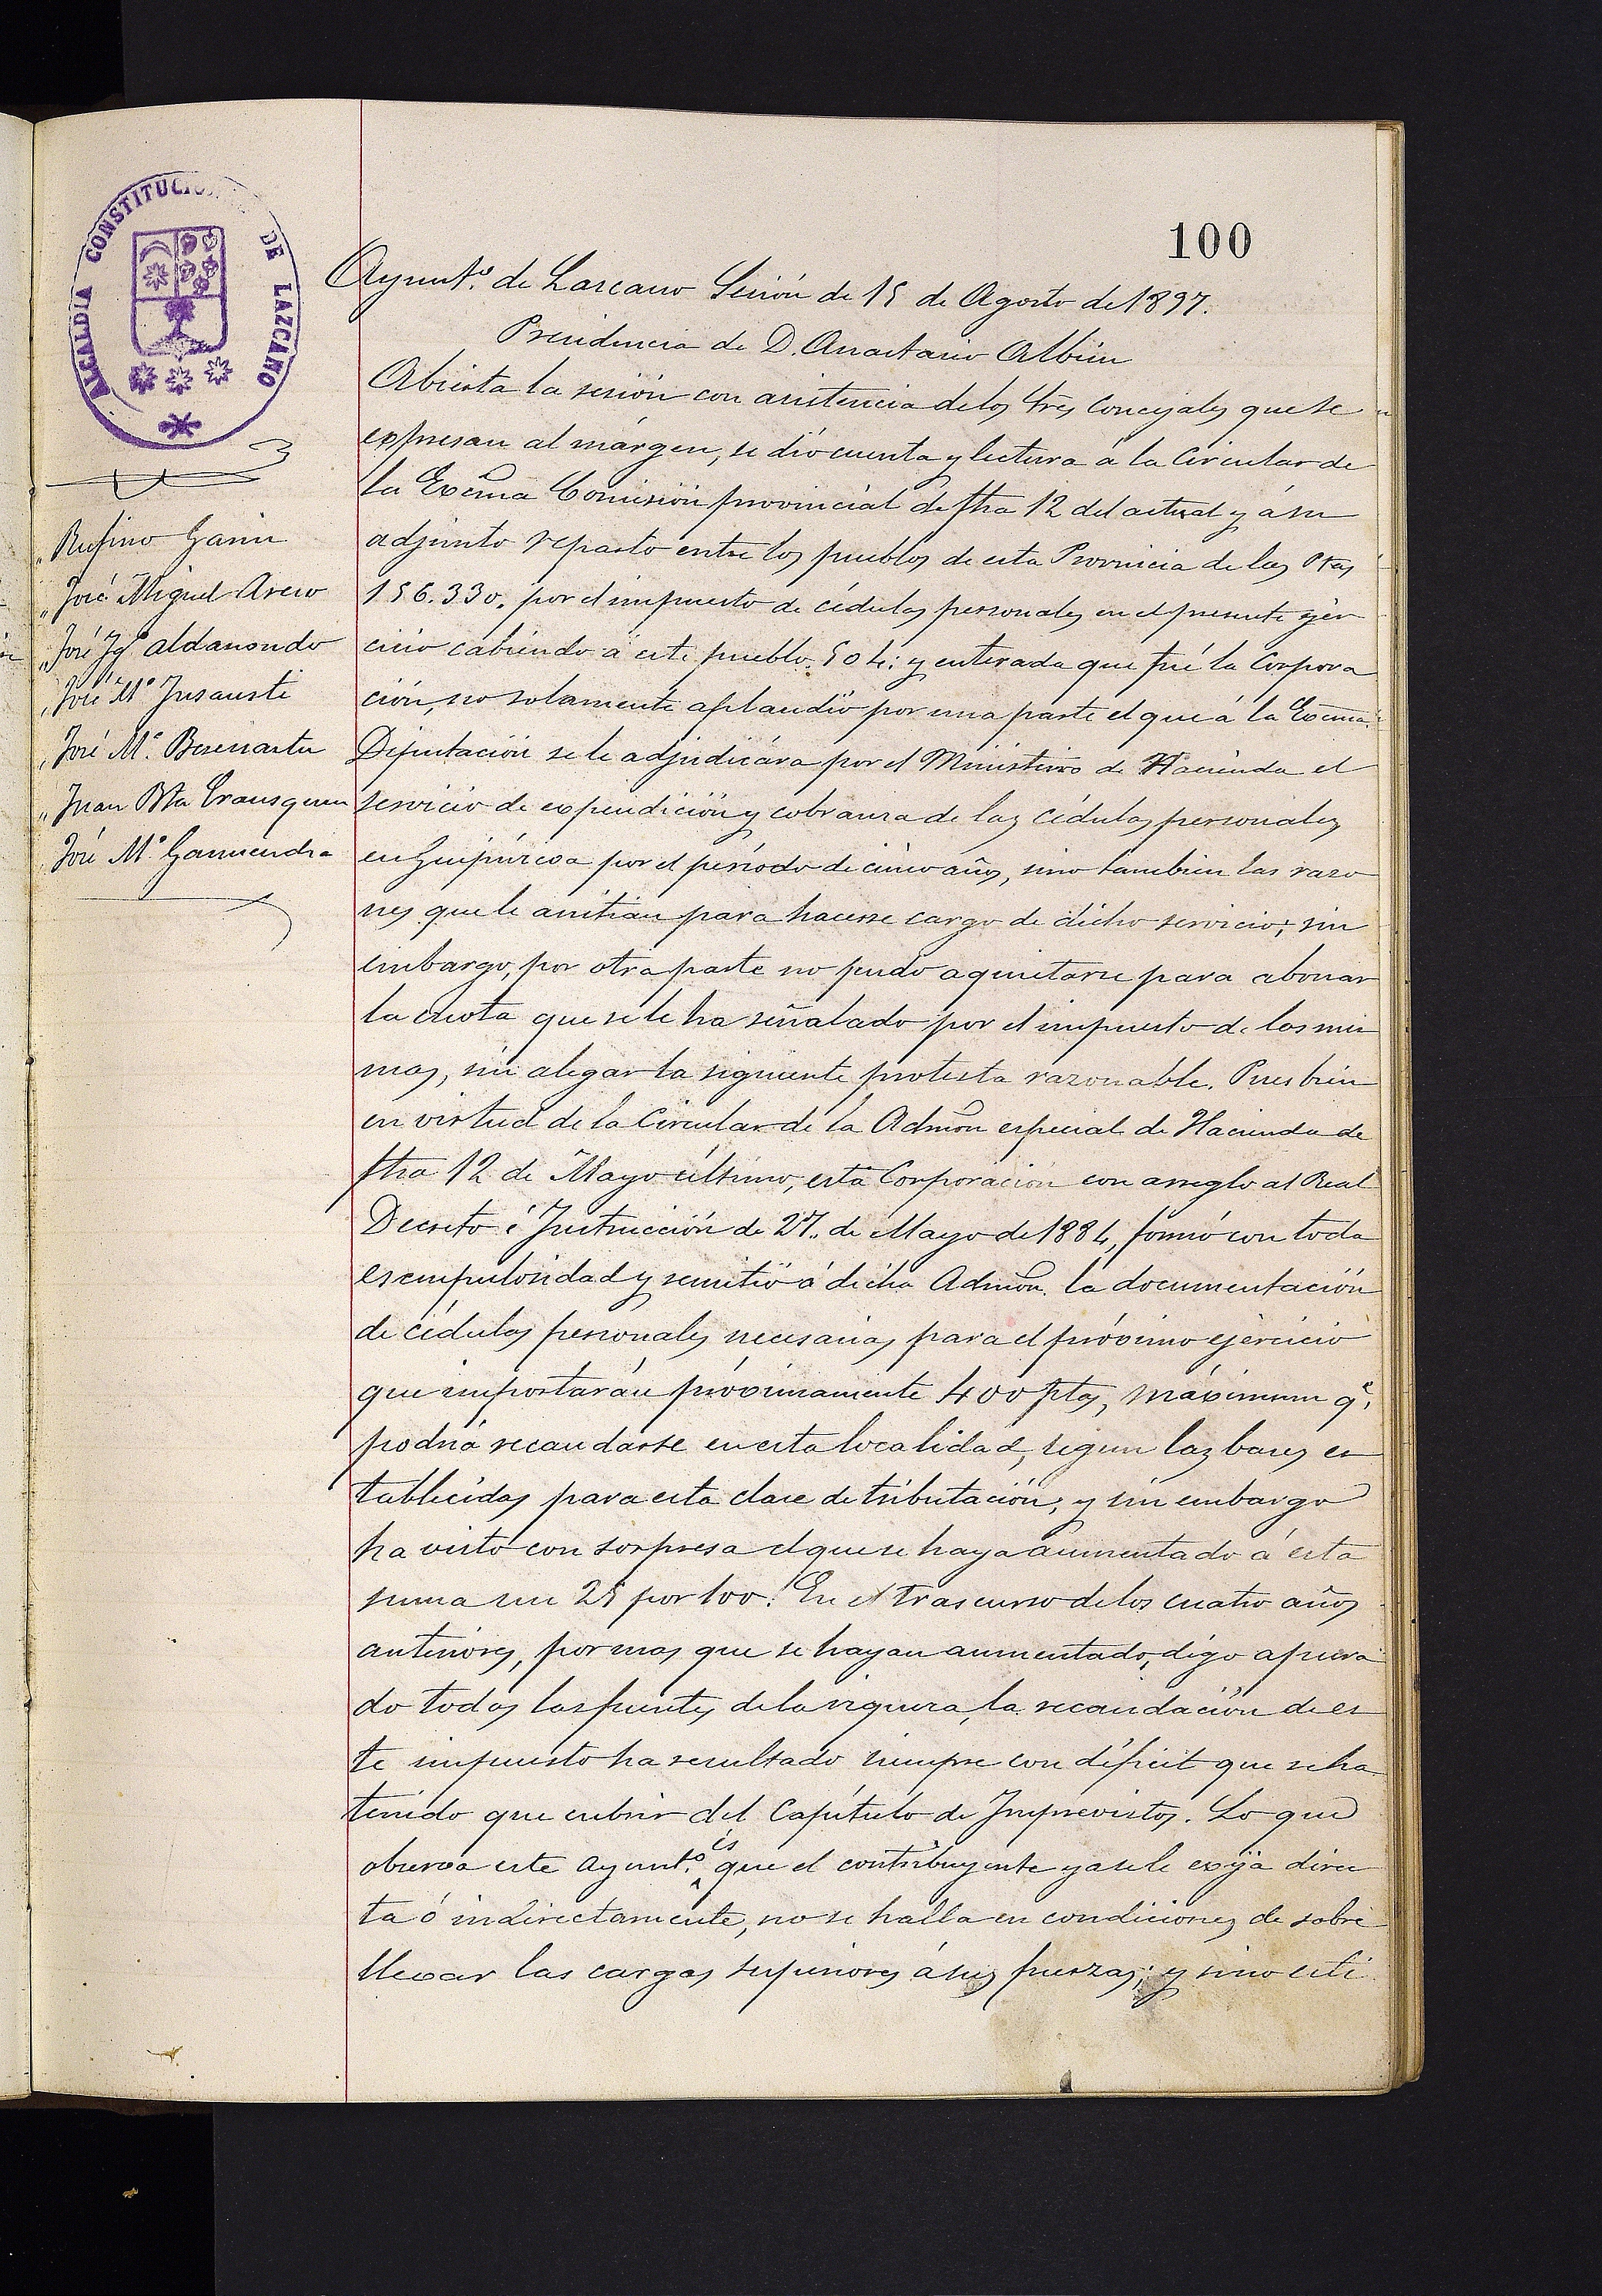 100
ALCALDIA CONSTITUCIO DE LAZCANO
Ayuntº. de Lazcano Sesión de 15 de Agosto de 1897.
Presidencia de D. Anastasio Albisu
Rufino Garin
José Miguel Arcio
José Igº Aldanondo
José Mº Insausti
José Mº. Berenartu
Juan Bta Erausquin
José Mº. Garmendia
Abierta la sesión con asistencia de los Sres Concejales que se
expresan al márgen, se dió cuenta y lectura á la Circular de
la Excma Comisión provincial de fha 12 del actual y á su
adjunto reparto entre los pueblos de esta Provincia de las Ptas
156.330. por el impuesto de cédulas personales en el presente ejer
cicio cabiendo á este pueblo. 504: y enterada que fué la Corpora
ción, no solamente aplaudió por una parte el que á la Excma.
Diputación se le adjudicára por el Ministerio de Hacienda el
servicio de expendición y cobranza de las cédulas personales
en Guipúzcoa por el período de cinco años, sino tambien las razo
nes que le asitian para hacerse cargo de dicho servicio; sin
embargo, por otra parte no pudo aquietarse para abonar
la cuota que se le ha señalado por el impuesto de las mis
mas, sin alegar la siguiente protesta razonable. Pues bien
en virtud de la Circular de la Admon especial de Hacienda de
fha 12 de Mayo último, esta Corporación con arreglo al Real
Decreto é Instrucción de 27. de Mayo de 1884, formó con toda
escrupulosidad y remitió á dicha Admon. la documentación
de cédulas personales necesarias para el próximo ejercicio
que importarán próximamente 400 ptas, máximum qe.
podrá recaudarse en esta localidad, segun las bases es
tablecidas para esta clase de tributación; y sin embargo
ha visto con sorpresa el que se haya aumentado á esta
suma un 25 por 100. En el trascurso de los cuatro años
anteriores, por mas que se hayan aumentado, digo apura
do todas las fuentes de la riqueza, la recaudación de es
te impuesto ha resultado siempre con déficit que se ha
tenido que cubrir del Capítulo de Imprevistos. Lo que
observa este Ayuntº. és que el contribuyente ya se le exija direc
ta ó indirectamente, no se halla en condiciones de sobre
llevar las cargas superiores á sus fuerzas; y sino esti